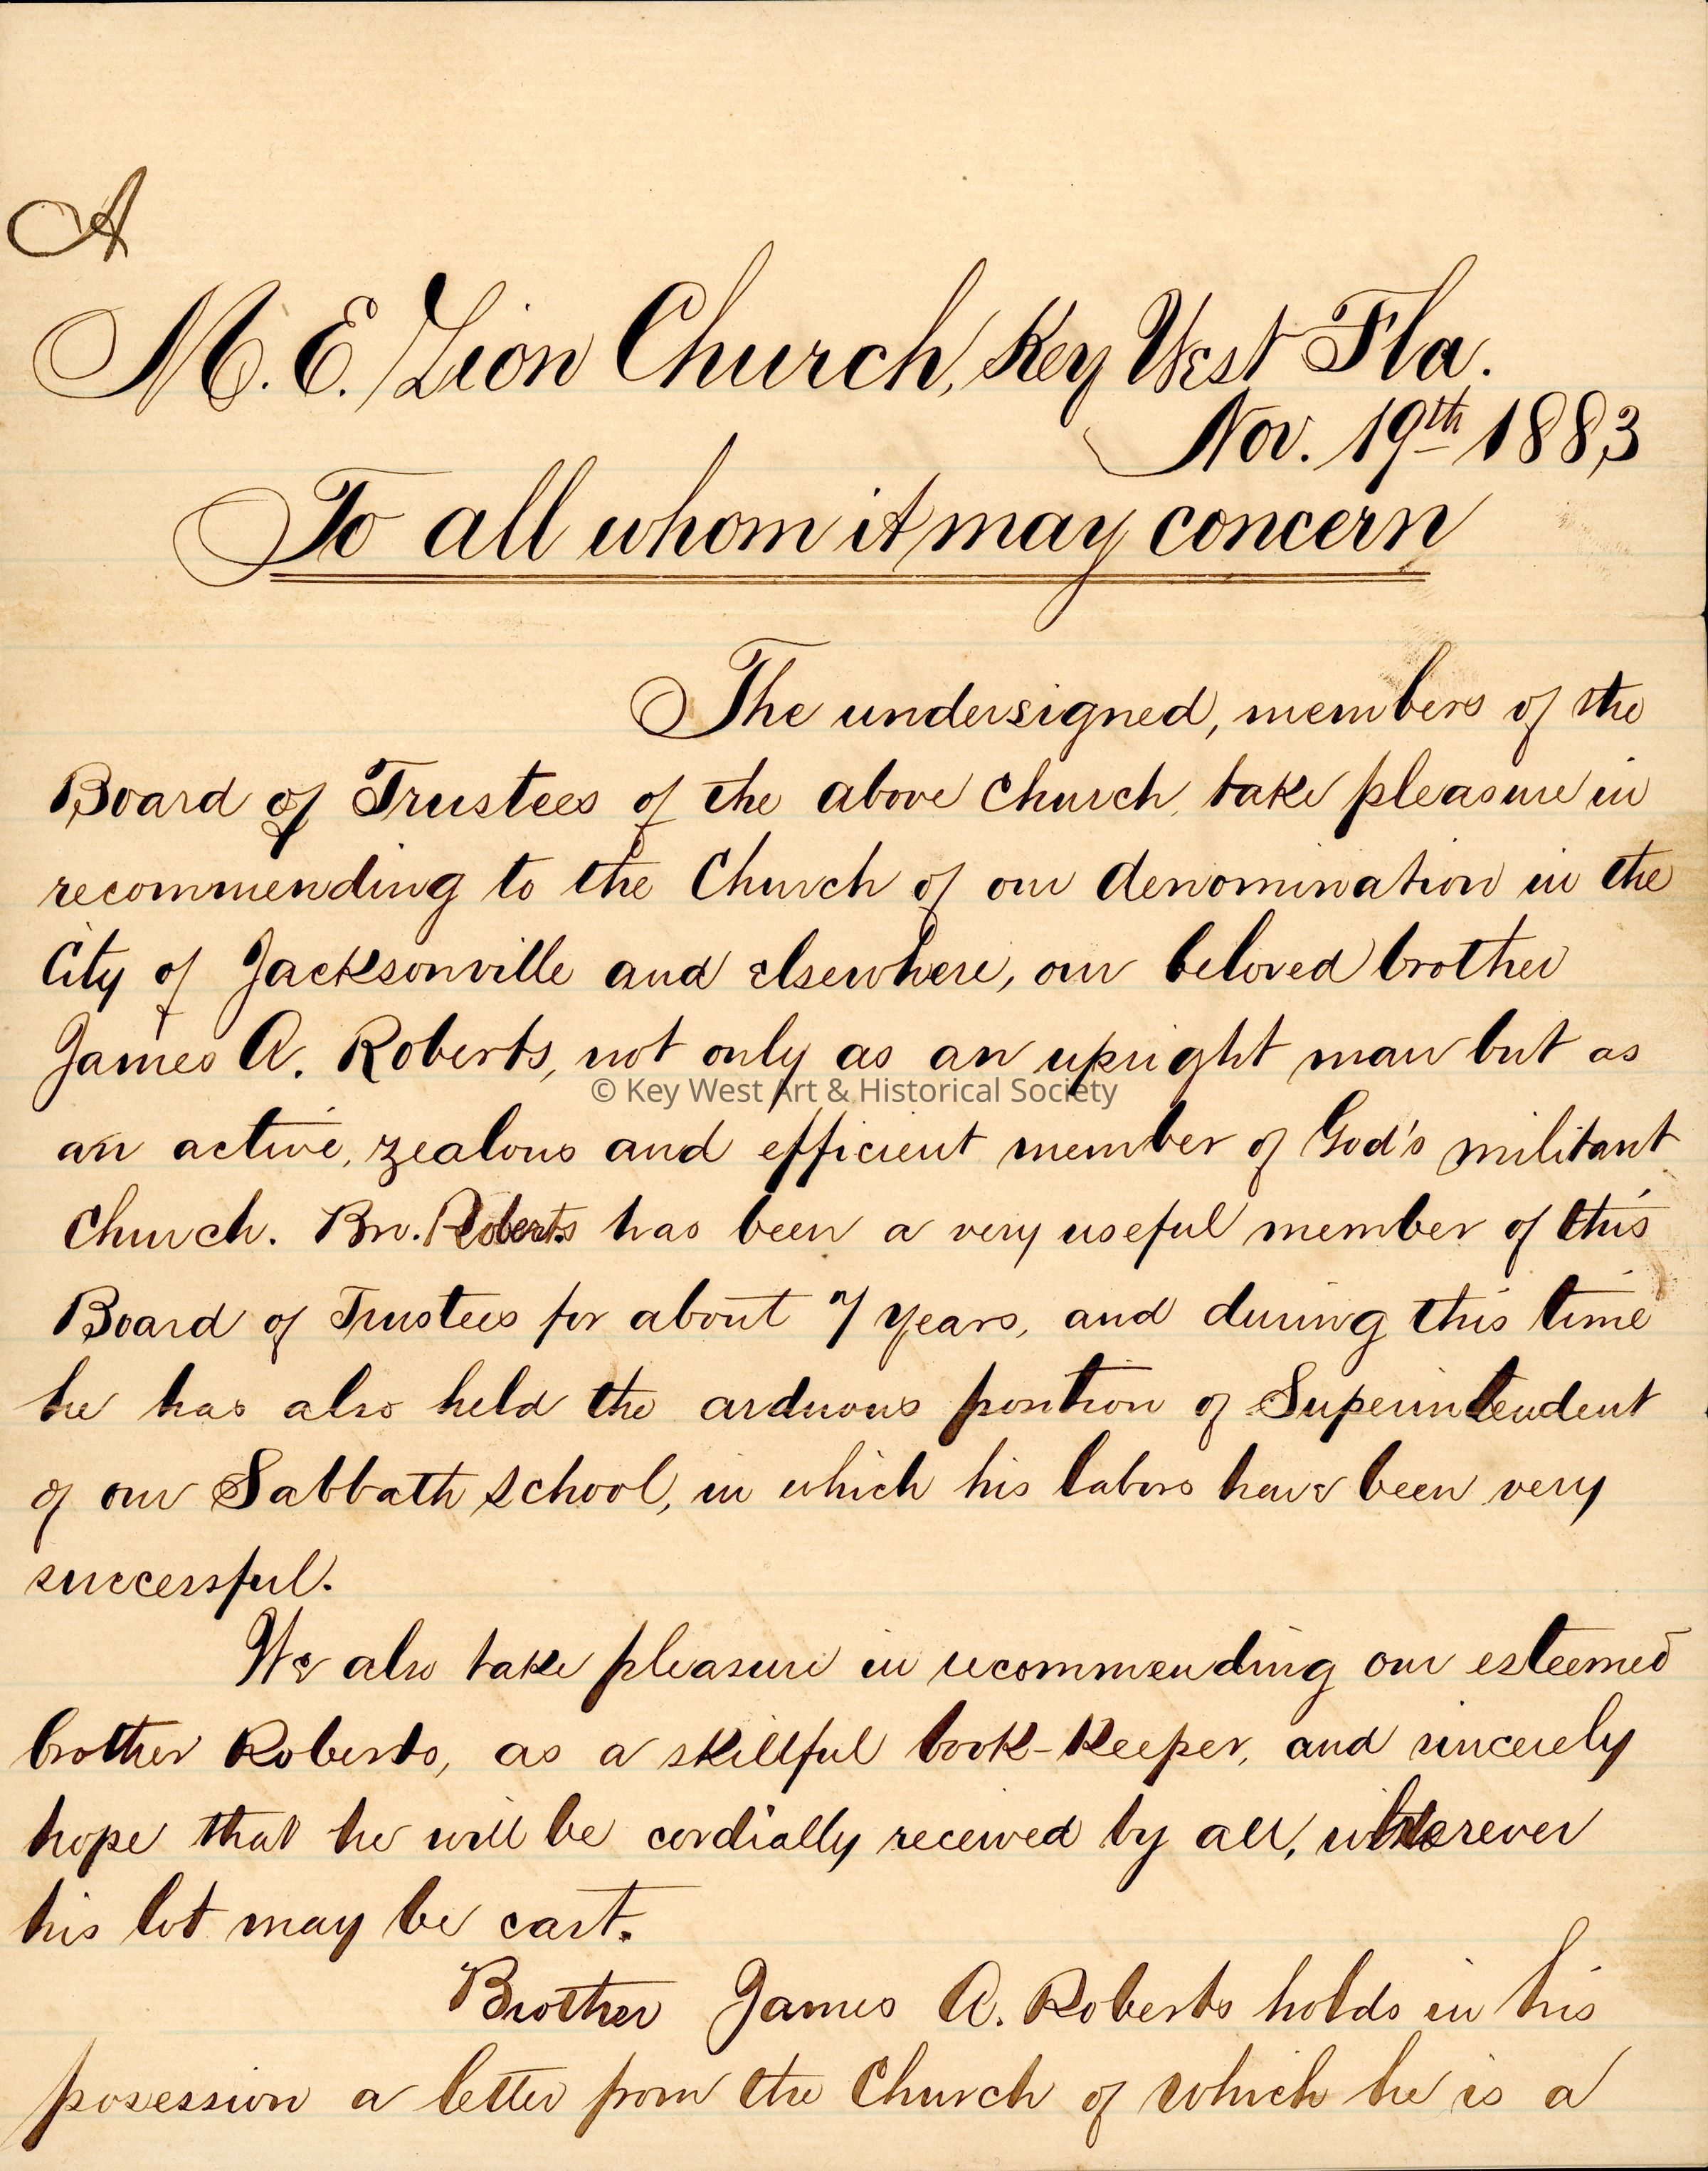 A
M. E. Zion Church, Key West Fla.
Nov. 19th 1883
To all whom it may concern
The undersigned, members of the
Board of Trustees of the above church, take pleasure in
recommending to the Church of our denomination in the
City of Jacksonville and elsewhere, our beloved brother
James A. Roberts, not only as an upright man but as
© Key West Art & Historical Society
an active, zealous and efficient member of God's militant
Church. Bro. Roberts has been a very useful member of this
Board of Trustees for about 7 years, and during this time
he has also held the arduous position of Superintendent
of our Sabbath School, in which his labors have been very
successful.
We also take pleasure in recommending our esteemed
brother Roberts, as a skillful book-keeper, and sincerely
hope that he will be cordially received by all, wherever
his lot may be cast.
Brother James A. Roberts holds in his
posession a letter from the Church of which he is a